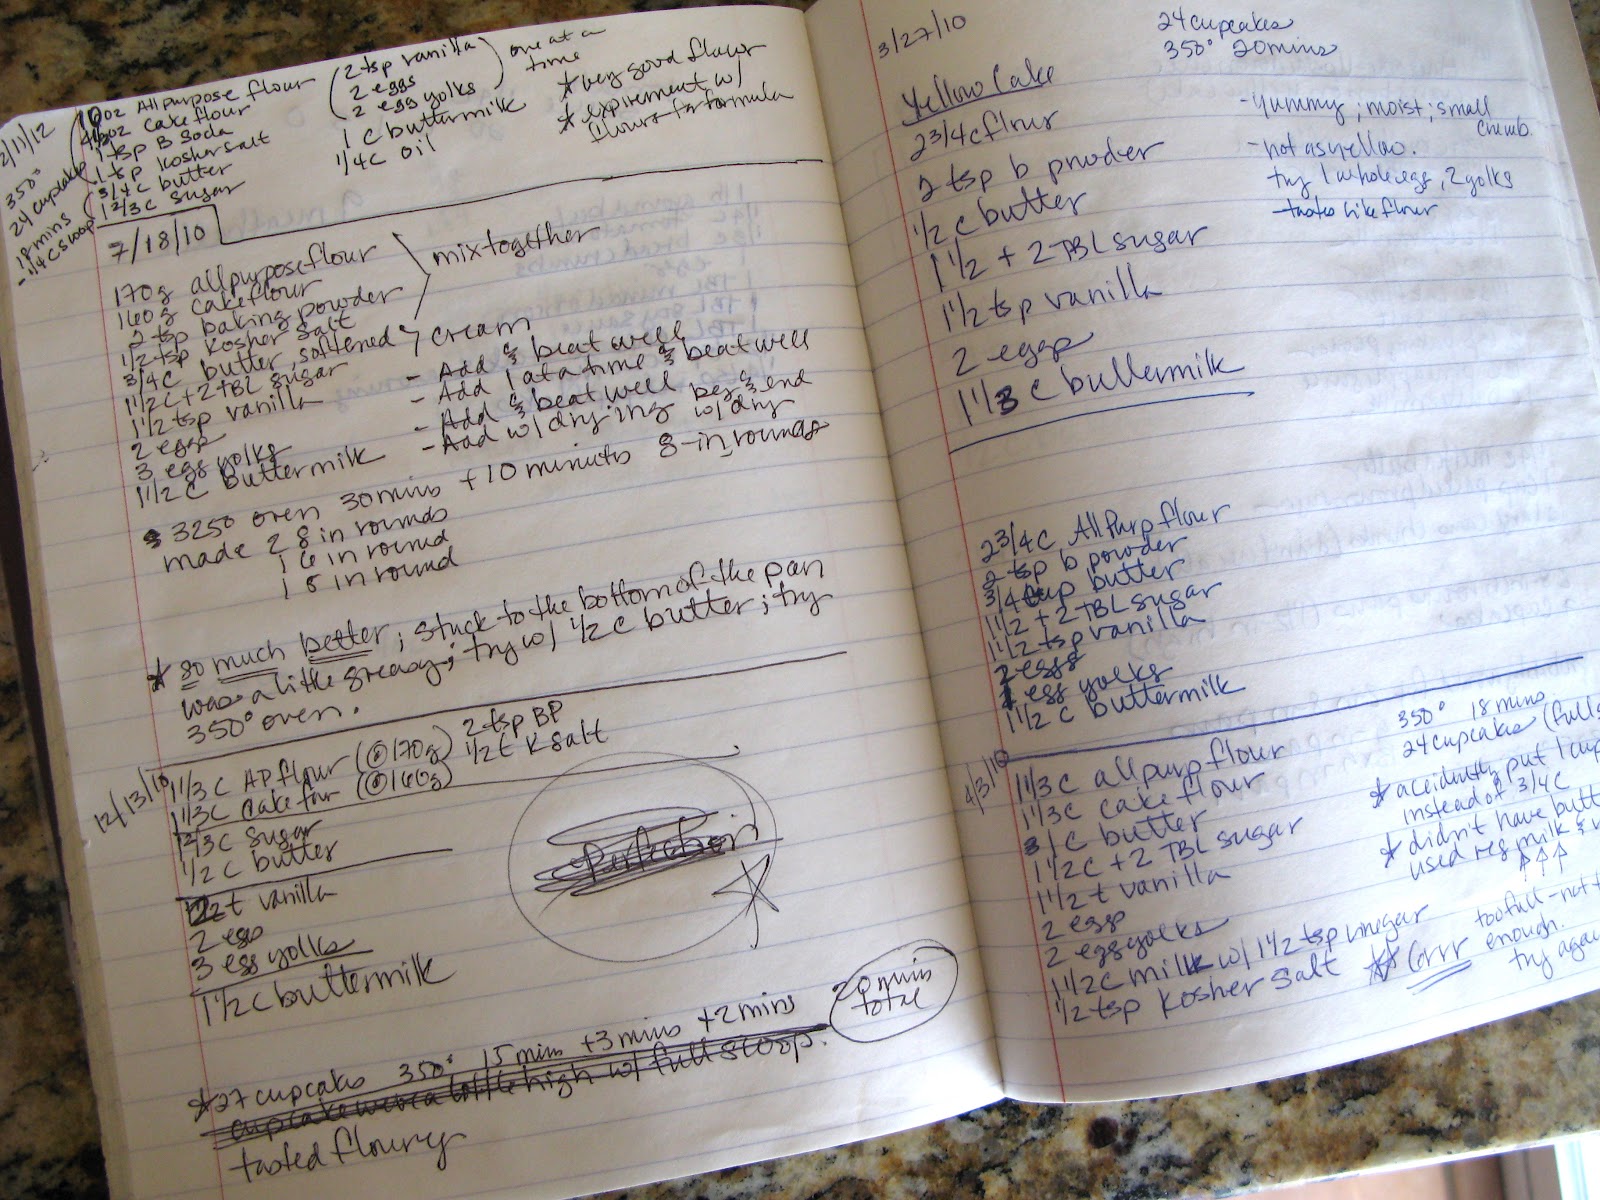 2/11/12
350°
24 cupcakes
18 mins
-1/4 c scoop
10oz All purpose flour
4 1/2oz Cake flour
1 tsp B Soda
1 tsp Kosher salt
3/4 c butter
1 2/3 c sugar
2 tsp vanilla
2 eggs
2 egg yolks
one at a
time
1 c buttermilk
1/4 c oil
* very good flavor
* expirement w/
flours for formula
7/18/10
170g all purpose flour
160g cake flour
2 tsp baking powder
1/2 tsp Kosher Salt
mix together
3/4 c butter, softened
1 1/2 c + 2 TBL sugar
cream
1 1/2 tsp vanilla - Add & beat well
2 eggs - Add 1 at a time & beat well
3 egg yolks - Add & beat well
1 1/2 c buttermilk - Add w/ dry ing beg & end
w/ dry
325° oven 30 mins + 10 minutes 8-in rounds
made 2 8 in rounds
1 6 in round
1 5 in round
* so much better; stuck to the bottom of the pan
was a little greasy; try w/ 1/2 c butter; try
350° oven.
12/13/10
1 1/3 c AP flour (@170g) 2 tsp BP
1 1/3 c Cake flour (@160g) 1/2 t K salt
1 2/3 c sugar
1/2 c butter
2 t vanilla
2 eggs
3 egg yolks
1 1/2 c buttermilk
perfection
* 27 cupcakes 350° 15 mins + 3 mins + 2 mins
20 mins
total
cupcake were a little high w/ full scoop.
tasted floury
3/27/10
24 cupcakes
350° 20 mins
Yellow Cake
2 3/4 c flour
2 tsp b powder
1/2 c butter
1 1/2 + 2 TBL sugar
1 1/2 tsp vanilla
2 eggs
1 1/3 c buttermilk
- yummy; moist; small
crumb
- not as yellow.
try 1 whole egg, 2 yolks
- tastes like flour
2 3/4 c All Purp flour
2 tsp b powder
3/4 cup butter
1 1/2 + 2 TBL sugar
1 1/2 tsp vanilla
2 eggs
egg yolks
1 1/2 c buttermilk
4/3/10
350° 18 mins
24 cupcakes (full s
1 1/3 c all purp flour
1 1/3 c cake flour
1 c butter
1 1/2 c + 2 TBL sugar
1 1/2 t vanilla
2 eggs
2 egg yolks
1 1/2 c milk w/ 1 1/2 tsp vinegar
1/2 tsp Kosher Salt
* accidently put 1 cup
instead of 3/4 c
* didn't have butt
used reg milk &
too full - not
enough.
try again
** Grrr